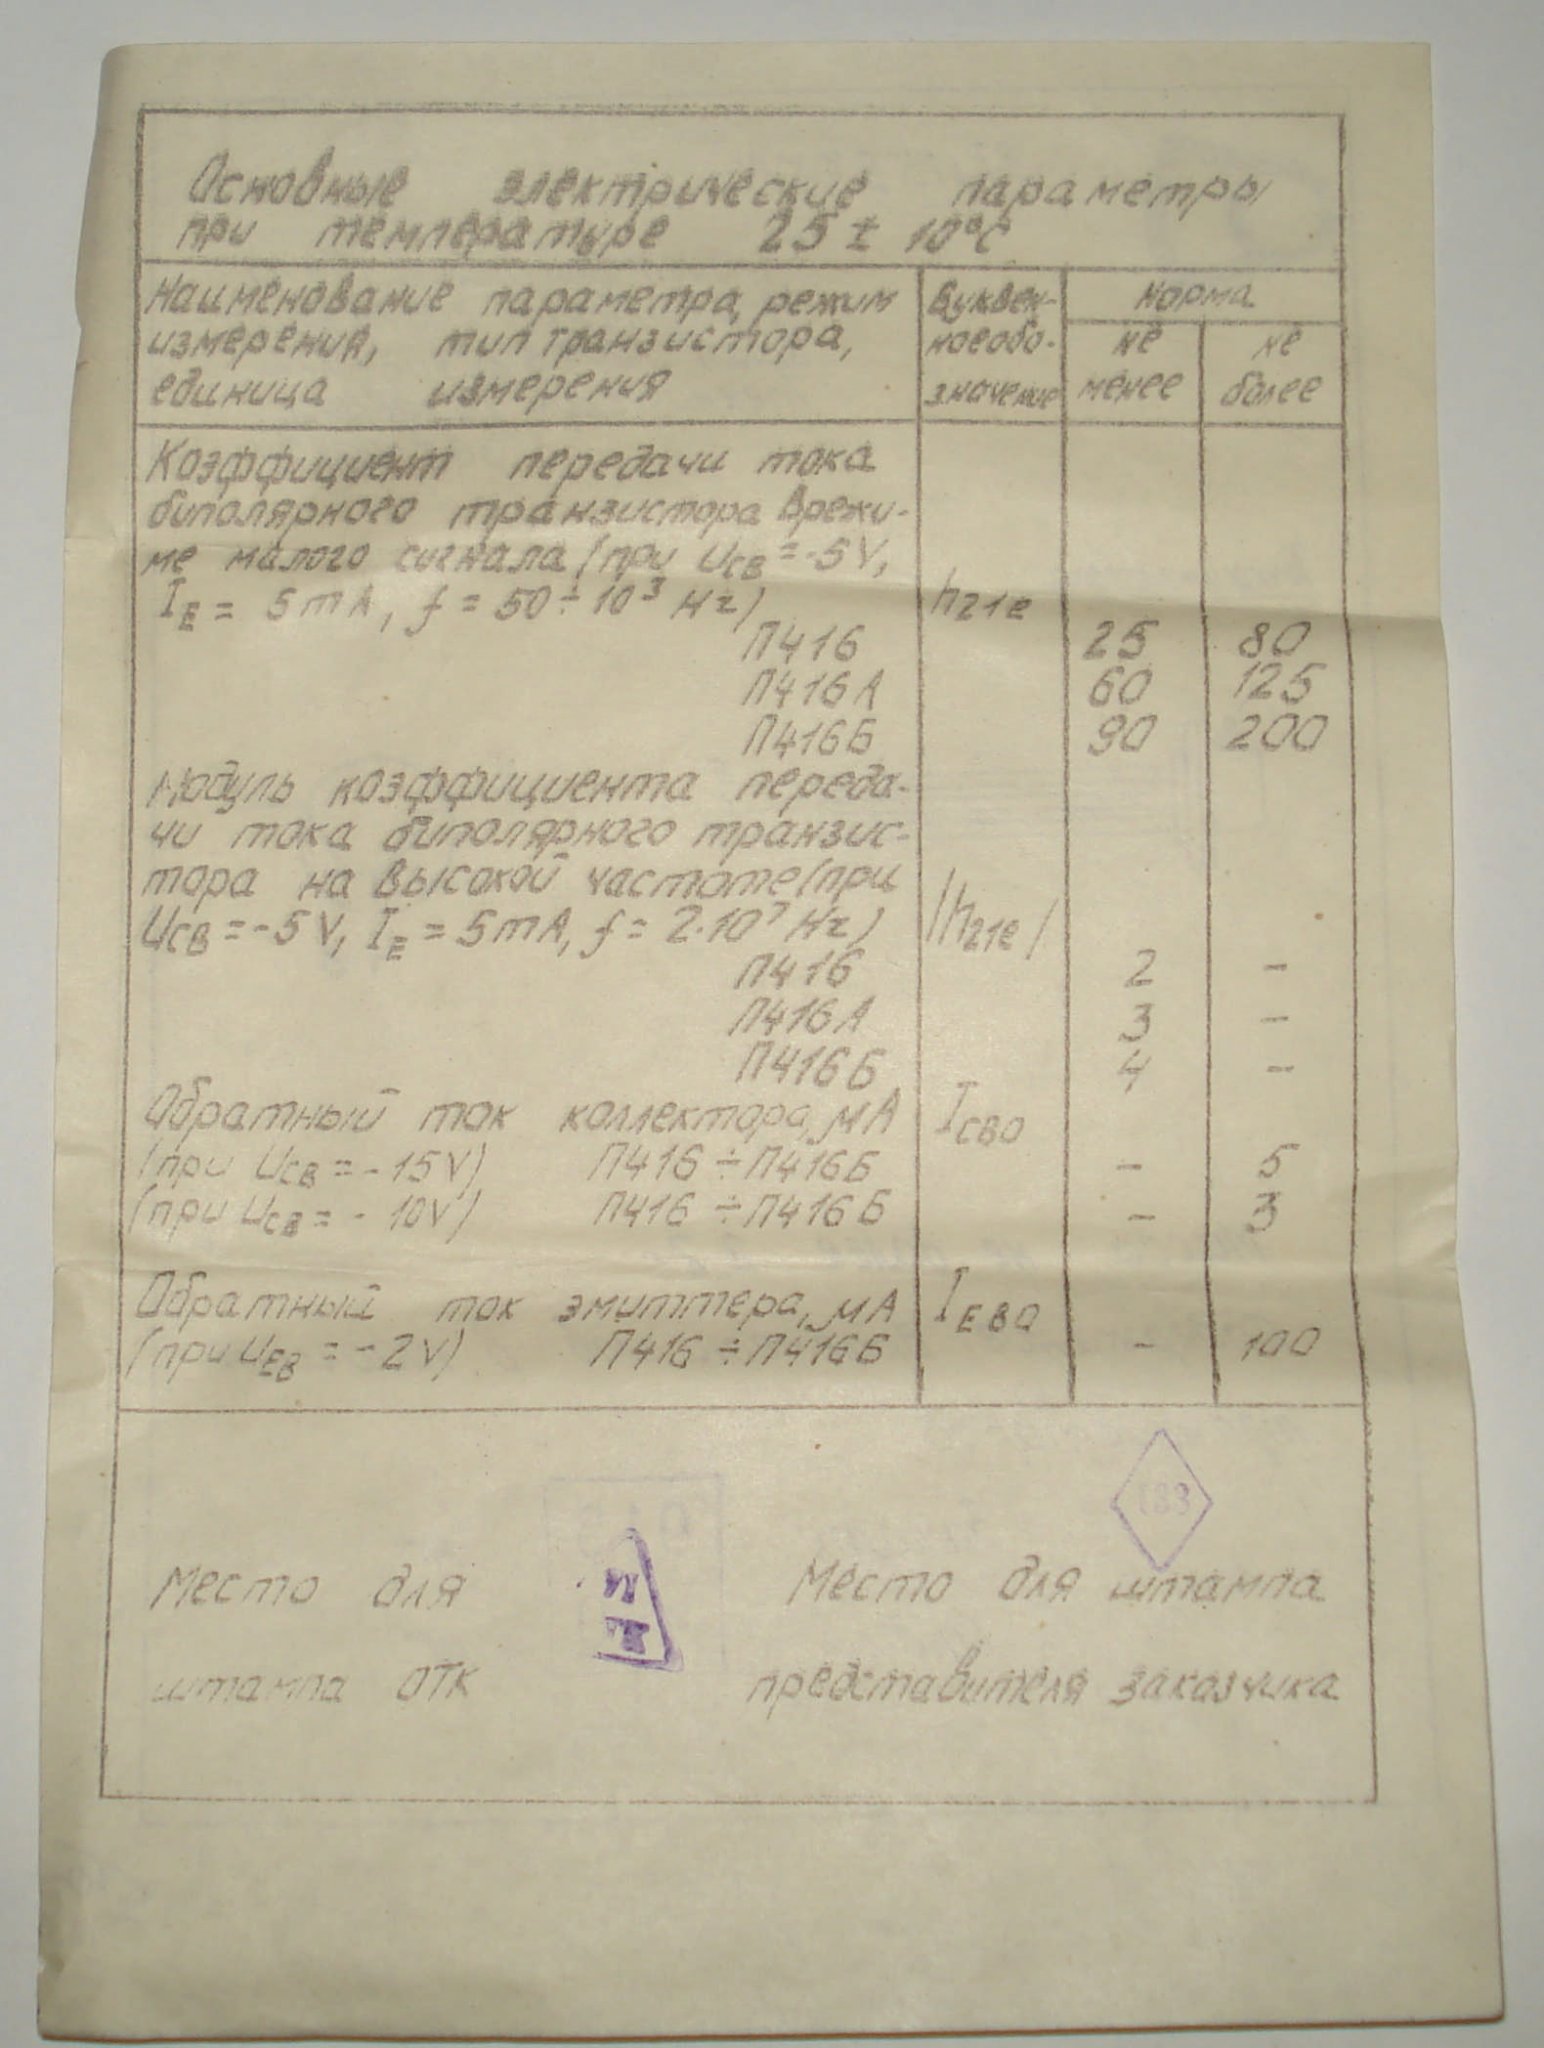 Основные электрические параметры
при температуре 25 ± 10°С
Наименование параметра, режим
измерения, тип транзистора,
единица измерения
Буквен-
ноеобо-
значение
Норма
не
менее
не
более
Коэффициент передачи тока
биполярного транзистора в режи-
ме малого сигнала (при UCB = -5V,
IE = 5mA, f = 50 ÷ 10³ Hz)
h21e
П416 25 80
П416А 60 125
П416Б 90 200
Модуль коэффициента переда-
чи тока биполярного транзис-
тора на высокой частоте (при
UCB = -5V, IE = 5mA, f = 2·10⁷ Hz)
|h21e|
П416 2 -
П416А 3 -
П416Б 4 -
Обратный ток коллектора, мкА ICBO
(при UCB = - 15V) П416 ÷ П416Б - 5
(при UCB = - 10V) П416 ÷ П416Б - 3
Обратный ток эмиттера, мкА IEBO
(при UEB = - 2V) П416 ÷ П416Б - 100
183
Место для
штампа ОТК
Место для штампа
представителя заказчика